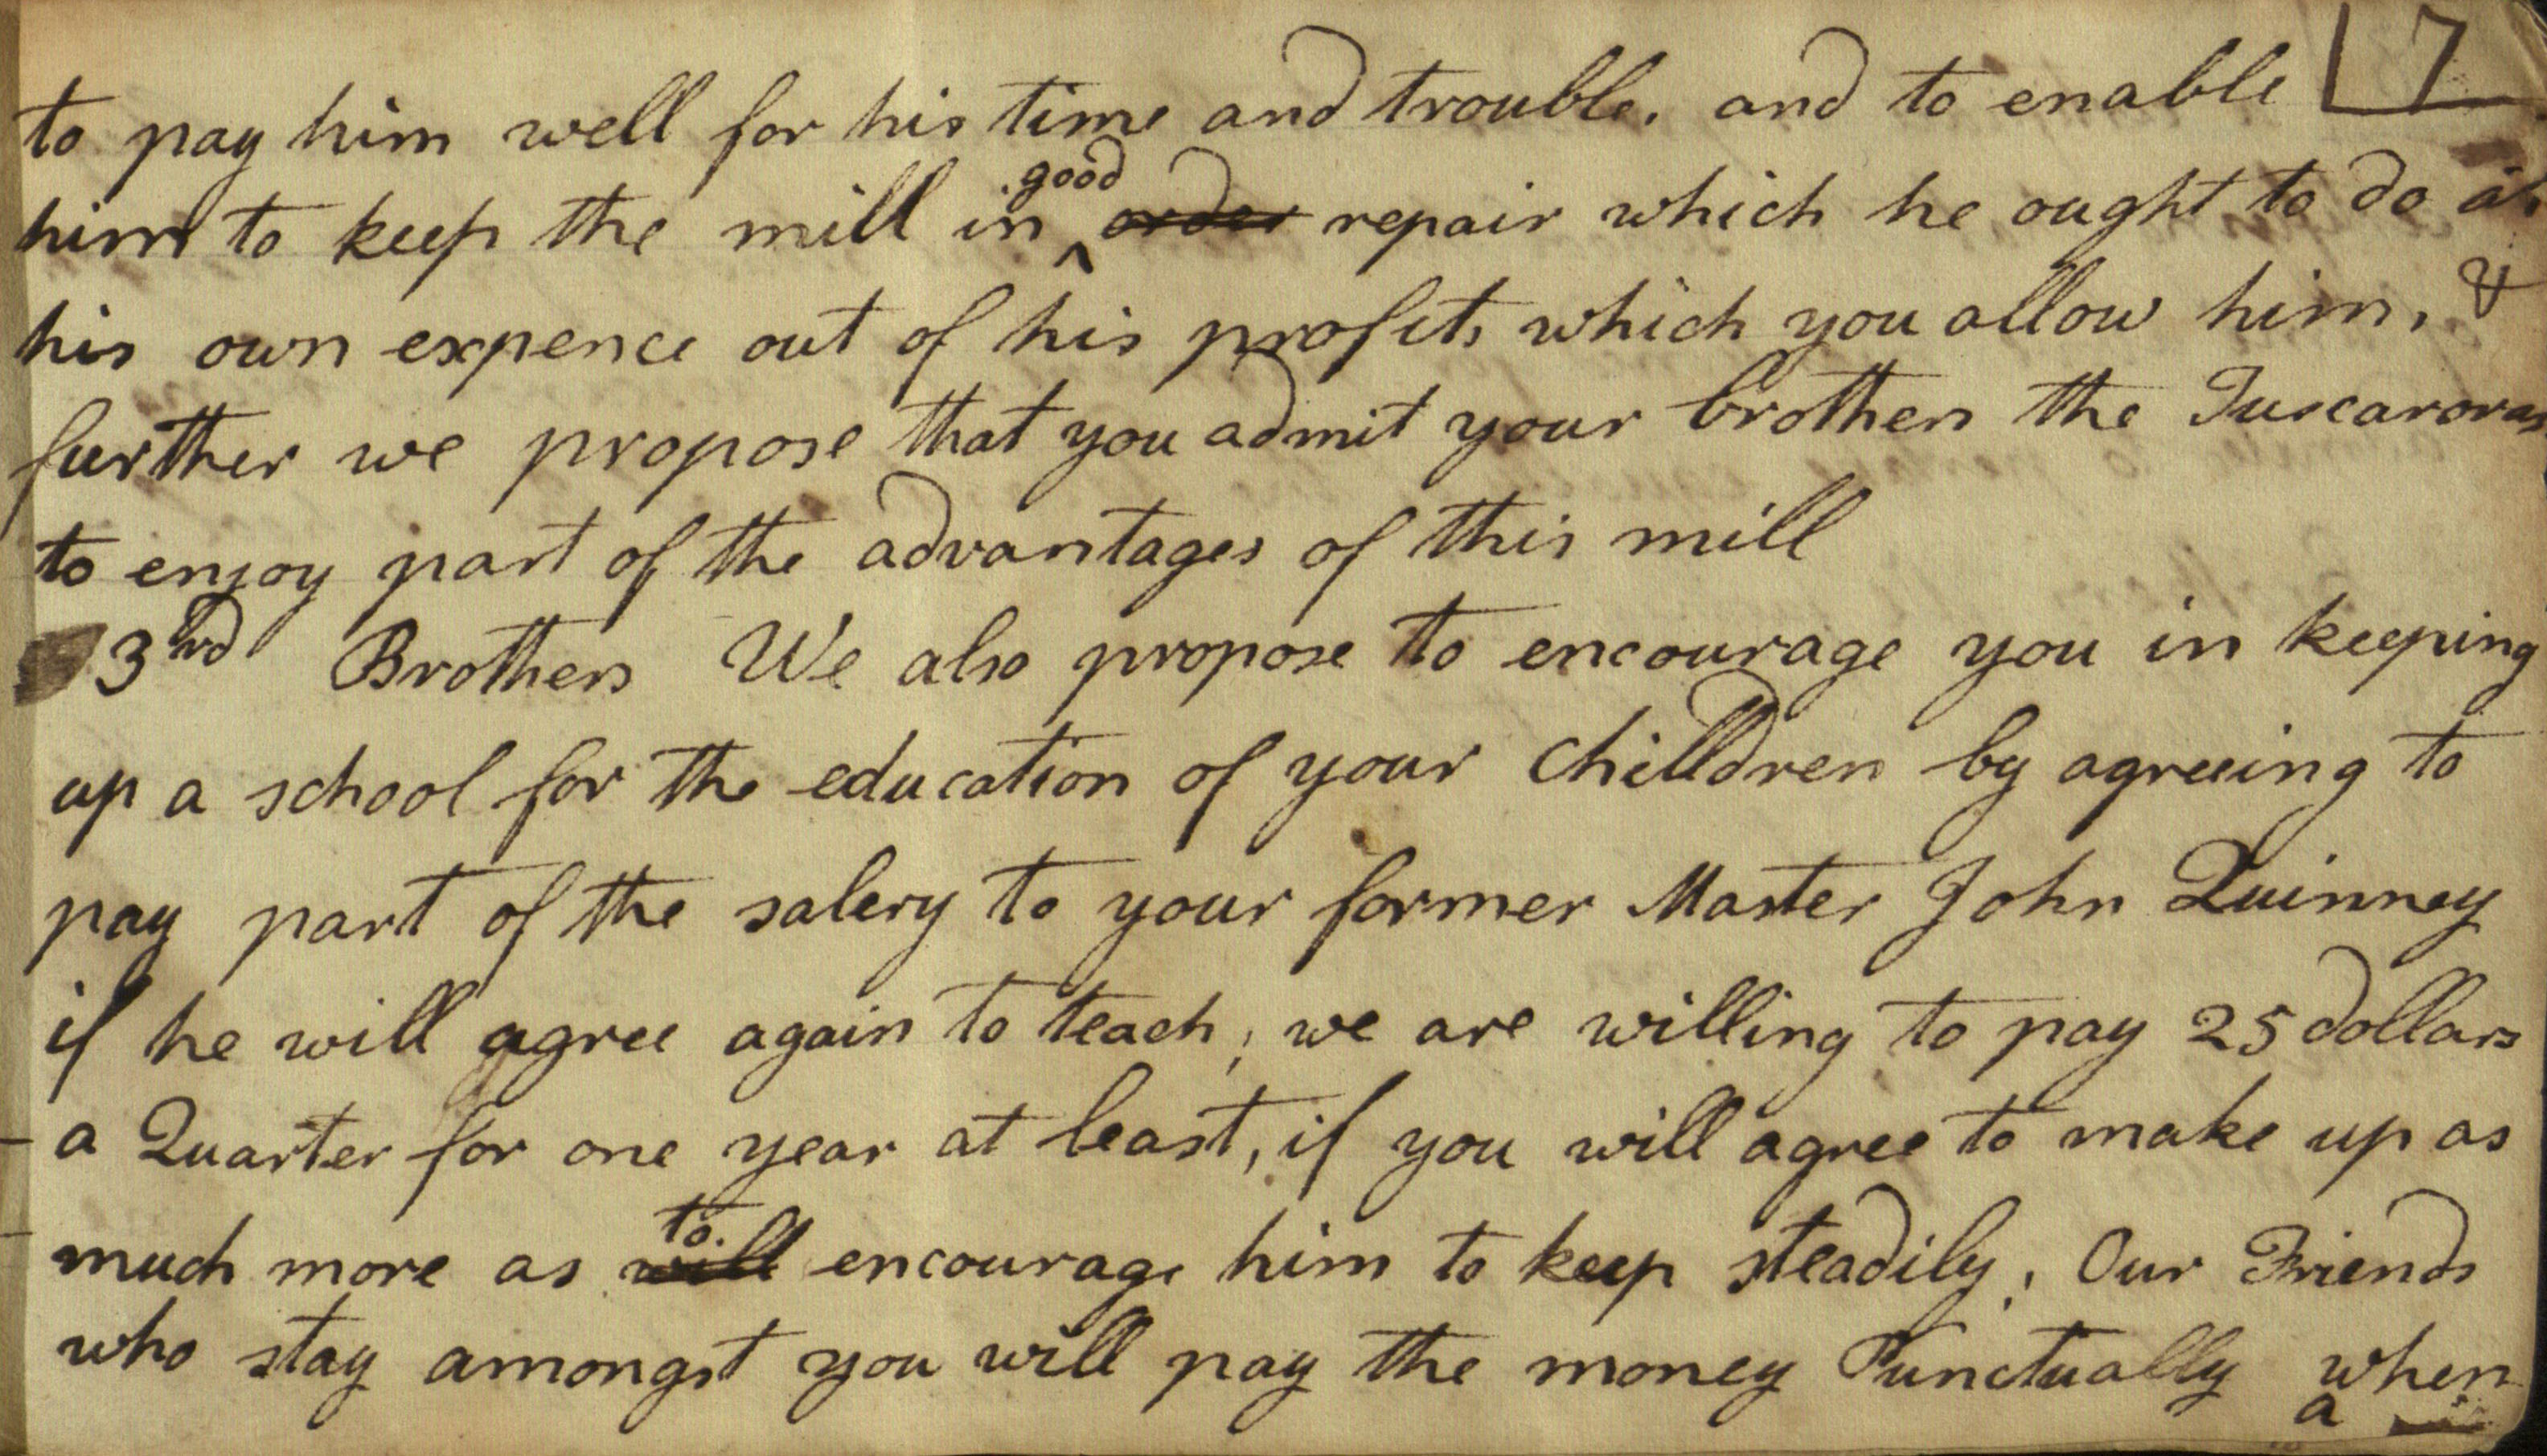 7
to pay him well for his time and trouble, and to enable
him to keep the mill in good order repair which he ought to do at
his own expence out of his profits which you allow him, &
further we propose that you admit your brothers the Tuscaroras
to enjoy part of the advantages of this mill
3rd Brothers We also propose to encourage you in keeping
up a school for the education of your chilldren by agreeing to
pay part of the salery to your former Master John Quinney
if he will agree again to teach, we are willing to pay 25 dollars
a Quarter for one year at least, if you will agree to make up as
much more as will to encourage him to keep steadily, Our Friends
who stay amongst you will pay the money Punctually when
a